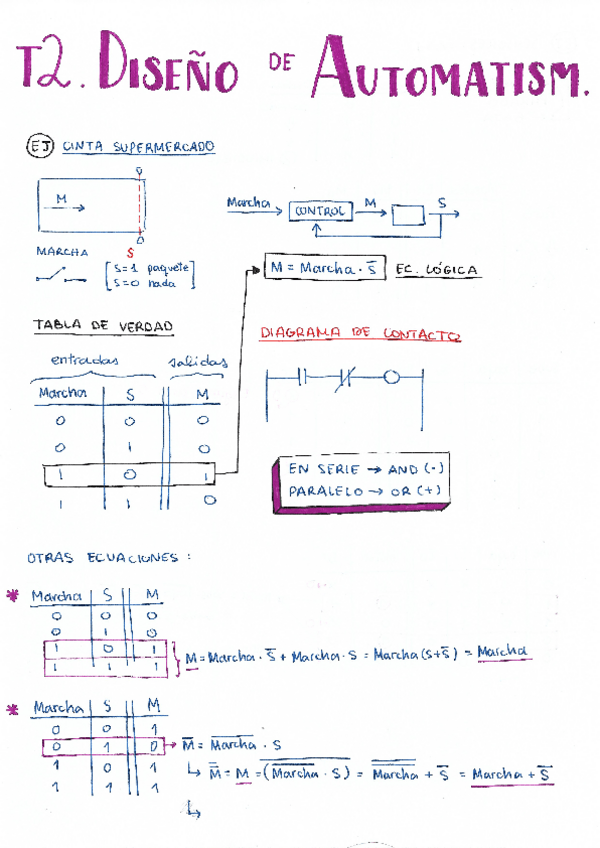 T2. DISEÑO DE AUTOMATISM.
EJ CINTA SUPERMERCADO
M
MARCHA S
S=1 paquete
S=0 nada
Marcha CONTROL M S
M = Marcha · S̅ EC. LÓGICA
TABLA DE VERDAD
entradas salidas
Marcha S M
0 0 0
0 1 0
1 0 1
1 1 0
DIAGRAMA DE CONTACTO
EN SERIE → AND (·)
PARALELO → OR (+)
OTRAS ECUACIONES :
* Marcha S M
0 0 0
0 1 0
1 0 1
1 1 1
M = Marcha · S̅ + Marcha · S = Marcha (S+S̅) = Marcha
* Marcha S M
0 0 1
0 1 0 → M̅ = M̅a̅r̅c̅h̅a̅ · S
1 0 1 ↳ M̿ = M = \overline{(\overline{Marcha} · S)} = \overline{\overline{Marcha}} + S̅ = Marcha + S̅
1 1 1
↳